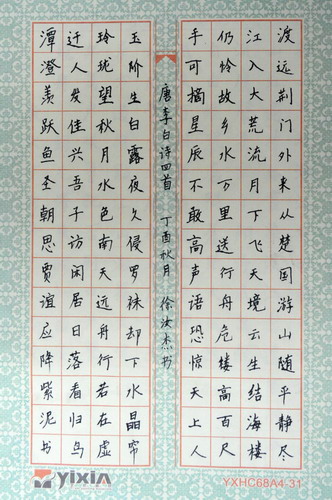 渡远荆门外来从楚国游山随平静尽
江入大荒流月下飞天境云生结海楼
仍怜故乡水万里送行舟危楼高百尺
手可摘星辰不敢高声语恐惊天上人
唐李白诗四首 丁酉秋月 徐汝杰书
玉阶生白露夜久侵罗袜却下水晶帘
玲珑望秋月水色南天远舟行若在虚
迁人发佳兴吾子访闲居日落看归鸟
潭澄羡跃鱼圣朝思贾谊应降紫泥书
yixin
YXHC68A4-31